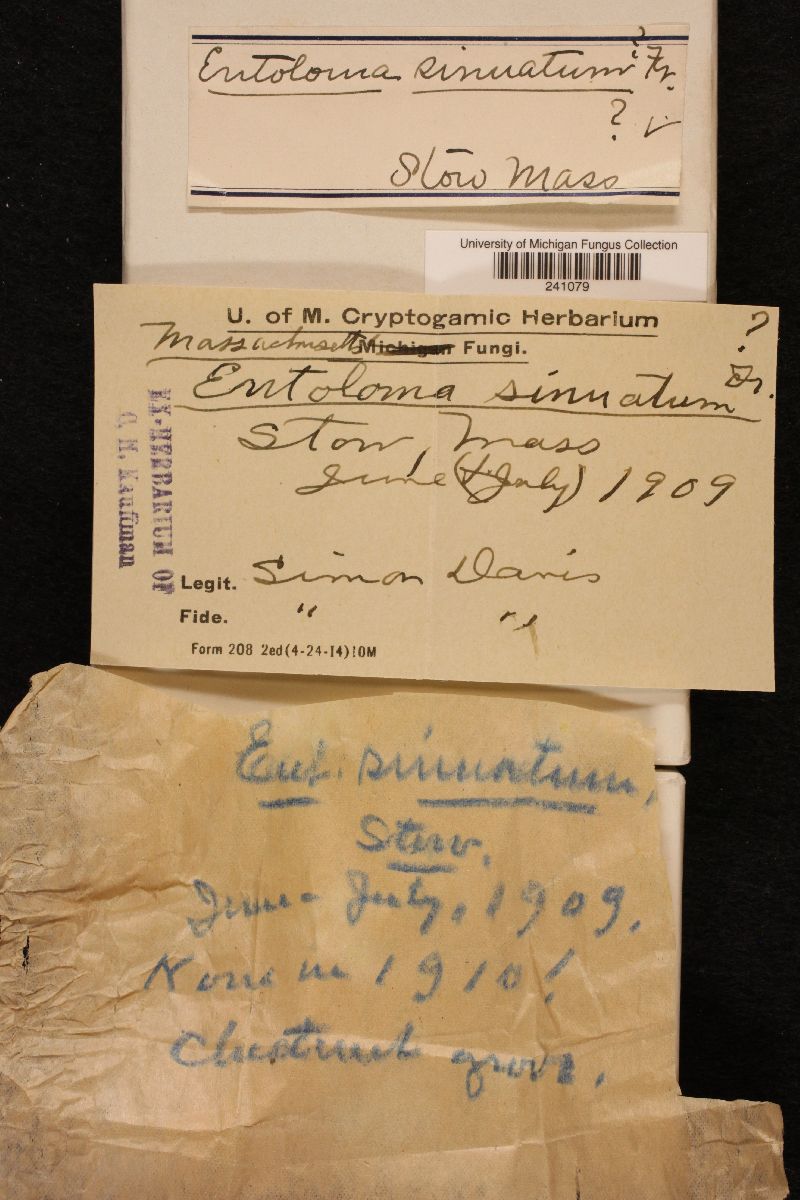 Entoloma sinuatum ? Fr.
?
Stow Mass
University of Michigan Fungus Collection
241079
U. of M. Cryptogamic Herbarium
Massachusetts Michigan Fungi.
?
Entoloma sinuatum Fr.
Stow, Mass
June (& July) 1909
EX-HERBARIUM OF
C. H. Kauffman
Legit. Simon Davis
Fide. " "
Form 208 2ed(4-24-14)10M
Ent. sinuatum,
Stow.
June - July, 1909.
None in 1910!
Chestnut grove.